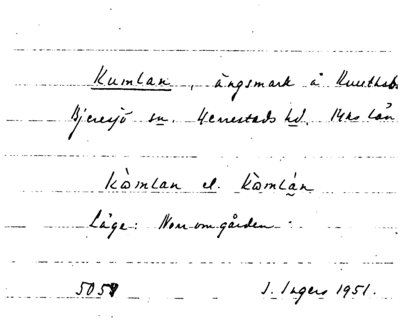 Kumlan, ängsmark å
Bjeresjö sn. Herrestads hd. M-hs län
Kömlan el. Kömlán
Läge: Norr om gården.
5058 I. Ingers 1951.